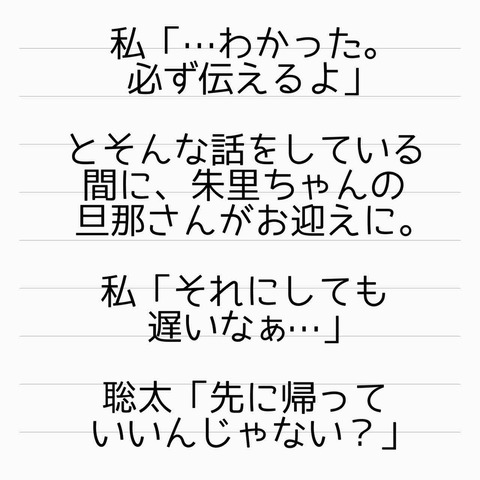 私「…わかった。
必ず伝えるよ」
とそんな話をしている
間に、朱里ちゃんの
旦那さんがお迎えに。
私「それにしても
遅いなぁ…」
聡太「先に帰って
いいんじゃない？」